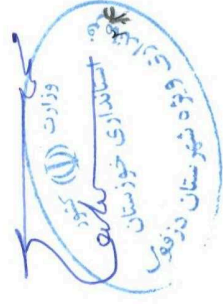 وزارت کشور
استانداری خوزستان
ویژه شهرستان دزفول